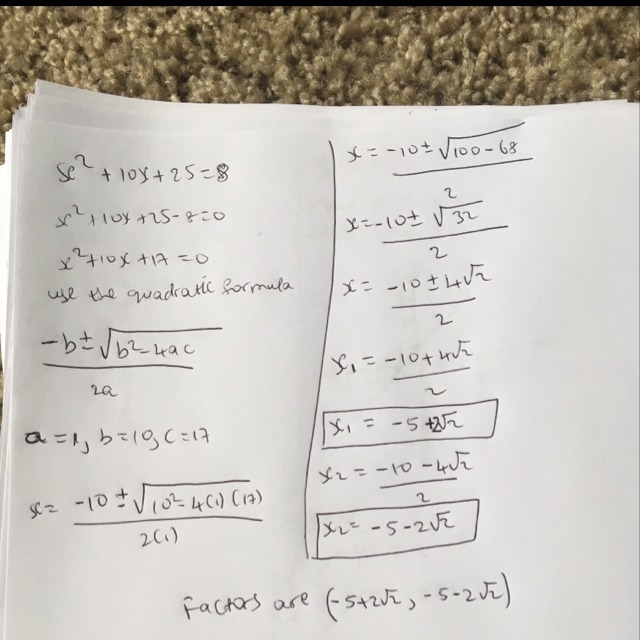 x² + 10x + 25 = 8
x² + 10x + 25 - 8 = 0
x² + 10x + 17 = 0
use the quadratic formula
-b ± √b² - 4ac
2a
a = 1, b = 10, c = 17
x = -10 ± √10² - 4(1)(17)
2(1)
x = -10 ± √100 - 68
2
x = -10 ± √32
2
x = -10 ± 4√2
2
x₁ = -10 + 4√2
2
x₁ = -5 + 2√2
x₂ = -10 - 4√2
2
x₂ = -5 - 2√2
Factors are (-5+2√2, -5-2√2)